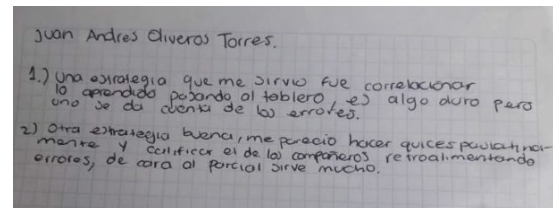 Juan Andres Oliveros Torres.
1.) Una estrategia que me sirvio fue correlacionar
lo aprendido pasando al tablero, es algo duro pero
uno se da cuenta de los errores.
2) Otra estrategia buena, me parecio hacer quices paulatina-
mente y calificar el de los compañeros retroalimentando
errores, de cara al parcial sirve mucho.